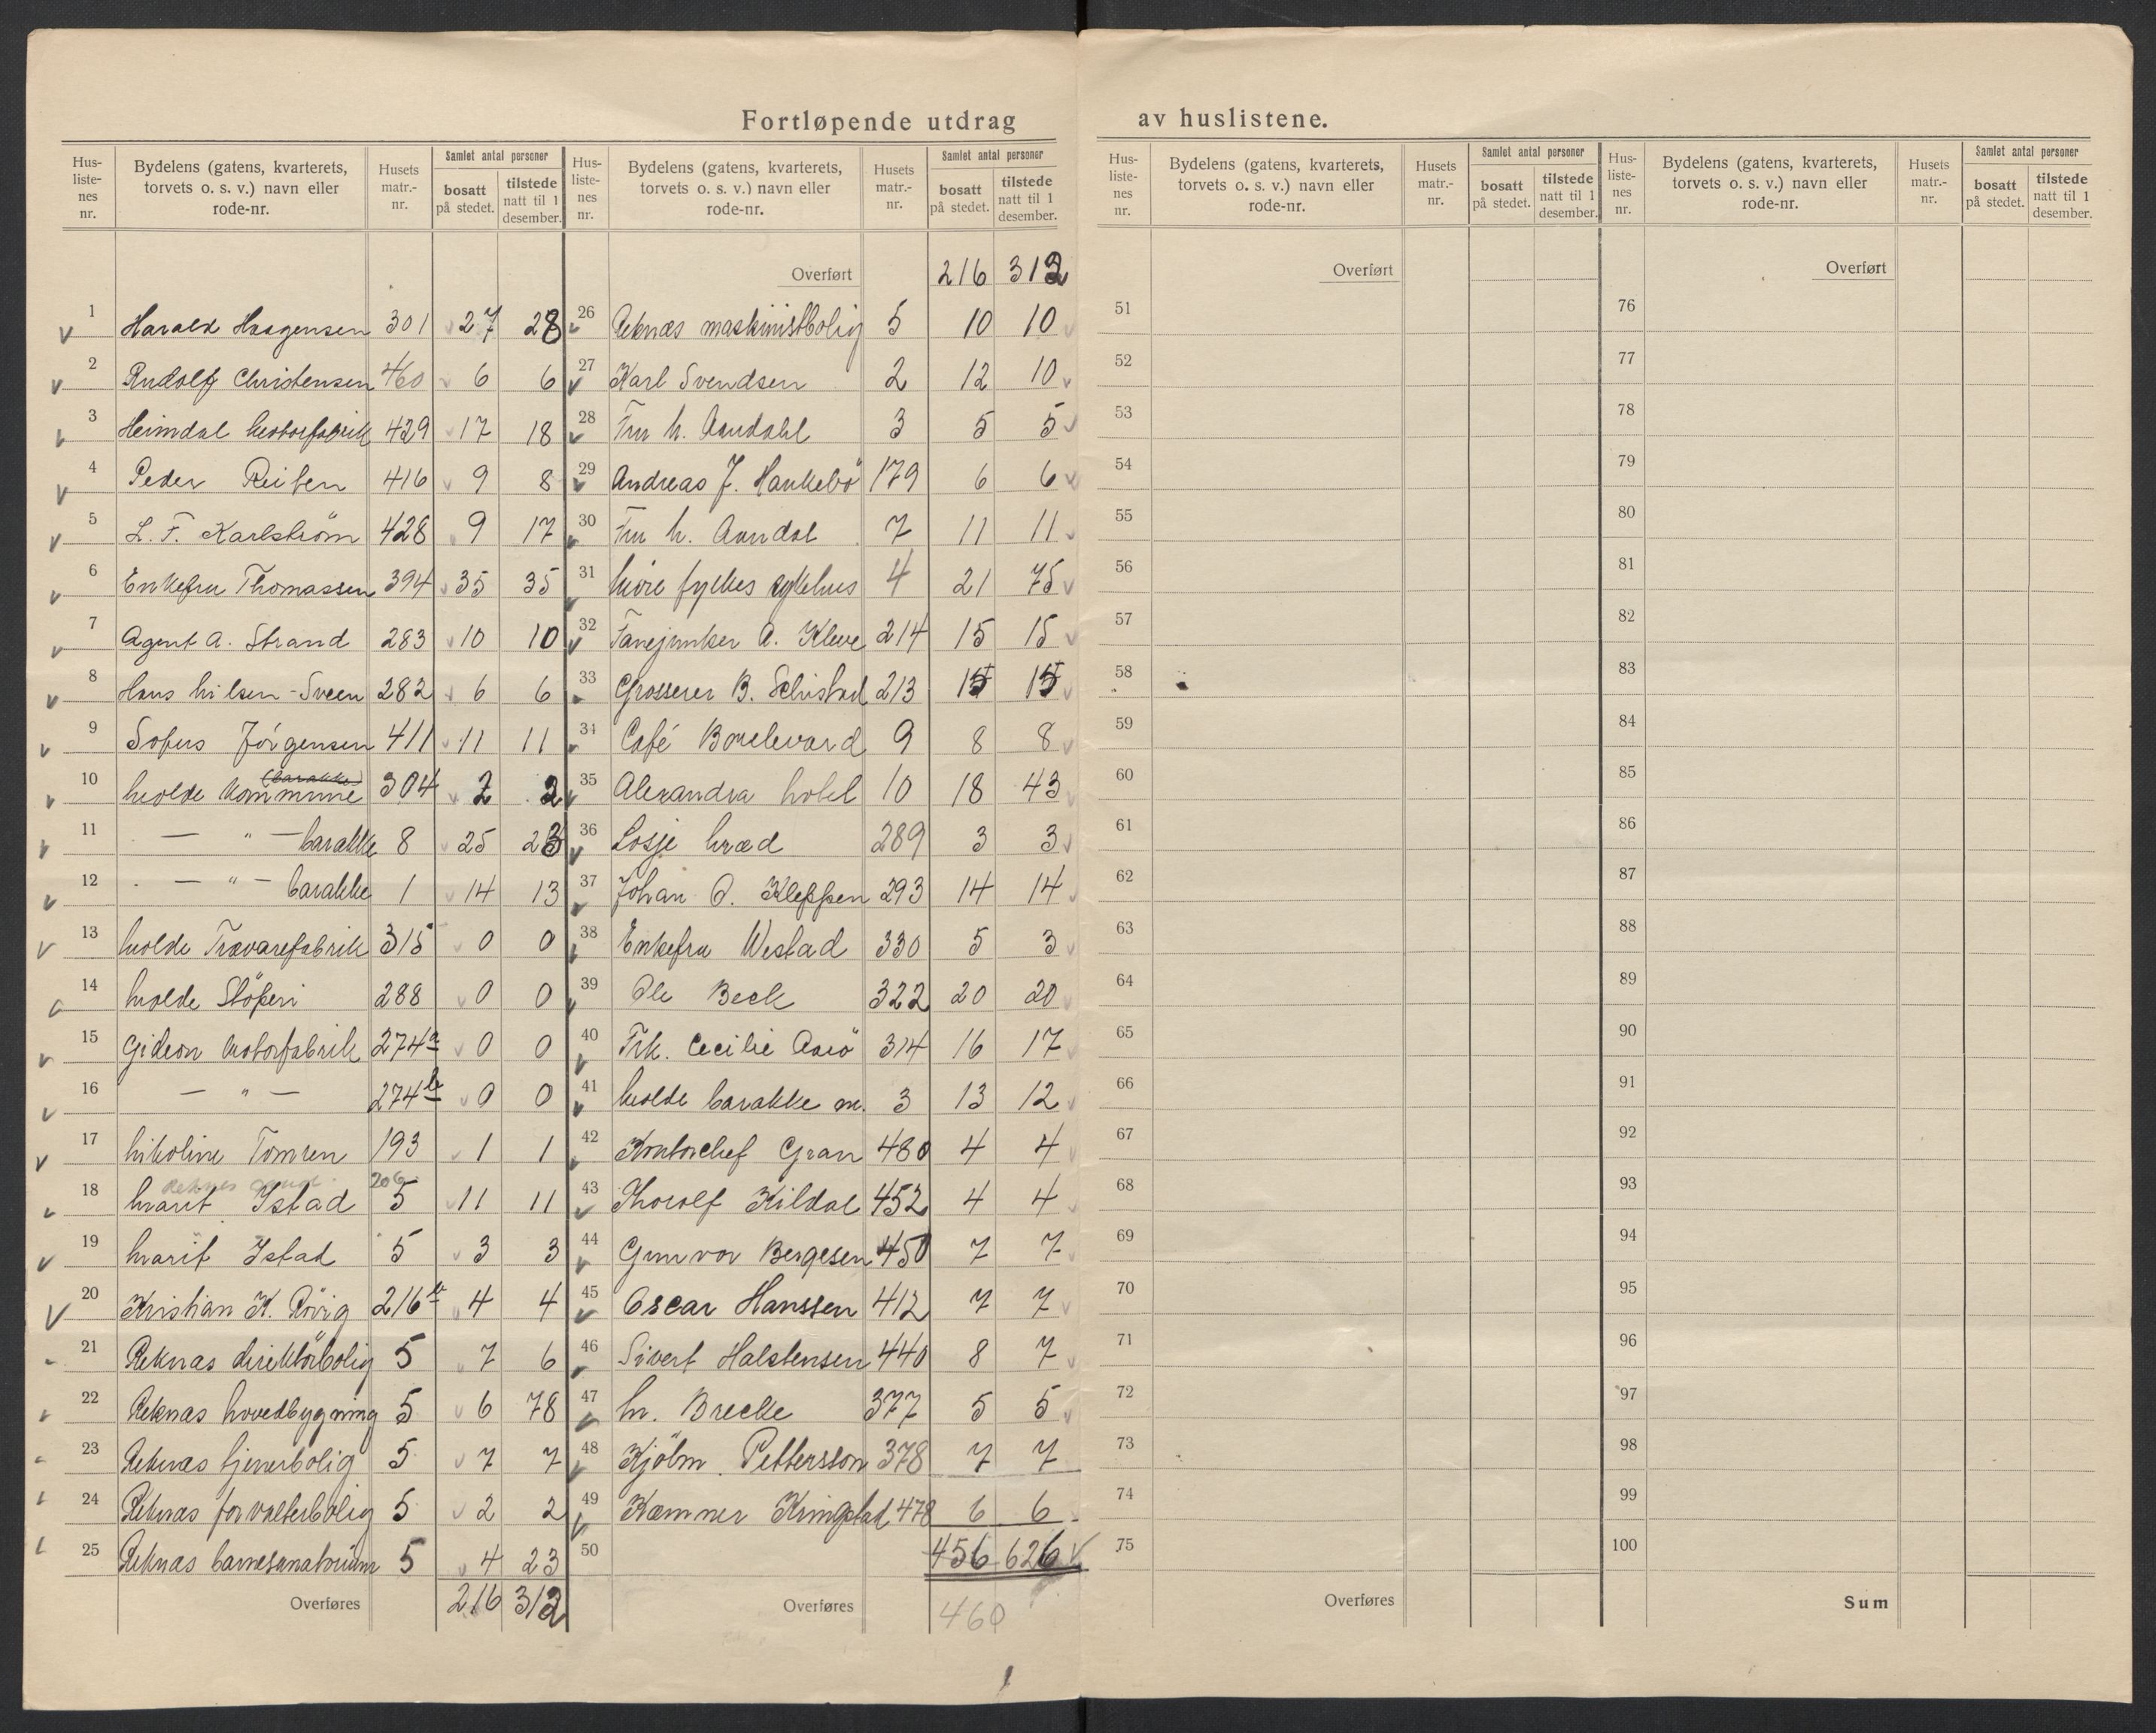 Fortløpende utdrag av huslistene.
Hus-listenes nr. | Bydelens (gatens, kvarterets, torvets o. s. v.) navn eller rode-nr. | Husets matr.-nr. | Samlet antal personer | bosatt på stedet. | tilstede natt til 1 desember.
1 Harald Haagensen 301 27 28
2 Rudolf Christensen 460 6 6
3 Heimdal Motorfabrik 429 17 18
4 Peder Reiten 416 9 8
5 L. F. Karlström 428 9 17
6 Enkefru Thomassen 394 35 35
7 Agent A. Strand 283 10 10
8 Hans Nilsen-Sveen 282 6 6
9 Sofus Jörgensen 411 11 11
10 Molde Kommune (barakke) 304 2 2
11 — " — barakke 8 25 23
12 — " — barakke 1 14 13
13 Molde Trævarefabrik 315 0 0
14 Molde Stöperi 288 0 0
15 Gideon Motorfabrik 274a 0 0
16 — " — 274b 0 0
17 Nikoline Tomren 193 1 1
Reknes 206
18 Marit Istad 5 11 11
19 Marit Istad 5 3 3
20 Kristian K. Rövig 216b 4 4
21 Reknæs direktörbolig 5 7 6
22 Reknæs hovedbygning 5 6 78
23 Reknæs tjenerbolig 5 7 7
24 Reknæs forvalterbolig 5 2 2
25 Reknæs barnesanatorium 5 4 23
Overføres 216 312
Hus-listenes nr. | Bydelens (gatens, kvarterets, torvets o. s. v.) navn eller rode-nr. | Husets matr.-nr. | Samlet antal personer | bosatt på stedet. | tilstede natt til 1 desember.
Overført 216 312
26 Reknæs maskinistbolig 5 10 10
27 Karl Svendsen 2 12 10
28 Fru M. Aandahl 3 5 5
29 Andreas J. Haukebö 179 6 6
30 Fru M. Aandal 7 11 11
31 Möre fylkes sykehus 4 21 75
32 Fanejunker A. Kleve 214 15 15
33 Grosserer B. Schistad 213 15 15
34 Café Boulevard 9 8 8
35 Alexandra hotel 10 18 43
36 Losje Mræd 289 3 3
37 Johan O. Kleppen 293 14 14
38 Enkefru Westad 330 5 3
39 Ole Beck 322 20 20
40 Frk. Cecilie Aarö 314 16 17
41 Molde barakke nr. 3 13 12
42 Kontorchef Gran 480 4 4
43 Thorolf Kildal 452 4 4
44 Gunvor Bergesen 450 7 7
45 Oscar Hanssen 412 7 7
46 Sivert Halstensen 440 8 7
47 M. Brekke 377 5 5
48 Kjölm. Pettersson 378 7 7
49 Kæmner Kringstad 478 6 6
50 456 626
Overføres 460
Hus-listenes nr. | Bydelens (gatens, kvarterets, torvets o. s. v.) navn eller rode-nr. | Husets matr.-nr. | Samlet antal personer | bosatt på stedet. | tilstede natt til 1 desember.
Overført
51
52
53
54
55
56
57
58
59
60
61
62
63
64
65
66
67
68
69
70
71
72
73
74
75
Overføres
Hus-listenes nr. | Bydelens (gatens, kvarterets, torvets o. s. v.) navn eller rode-nr. | Husets matr.-nr. | Samlet antal personer | bosatt på stedet. | tilstede natt til 1 desember.
Overført
76
77
78
79
80
81
82
83
84
85
86
87
88
89
90
91
92
93
94
95
96
97
98
99
100
Sum